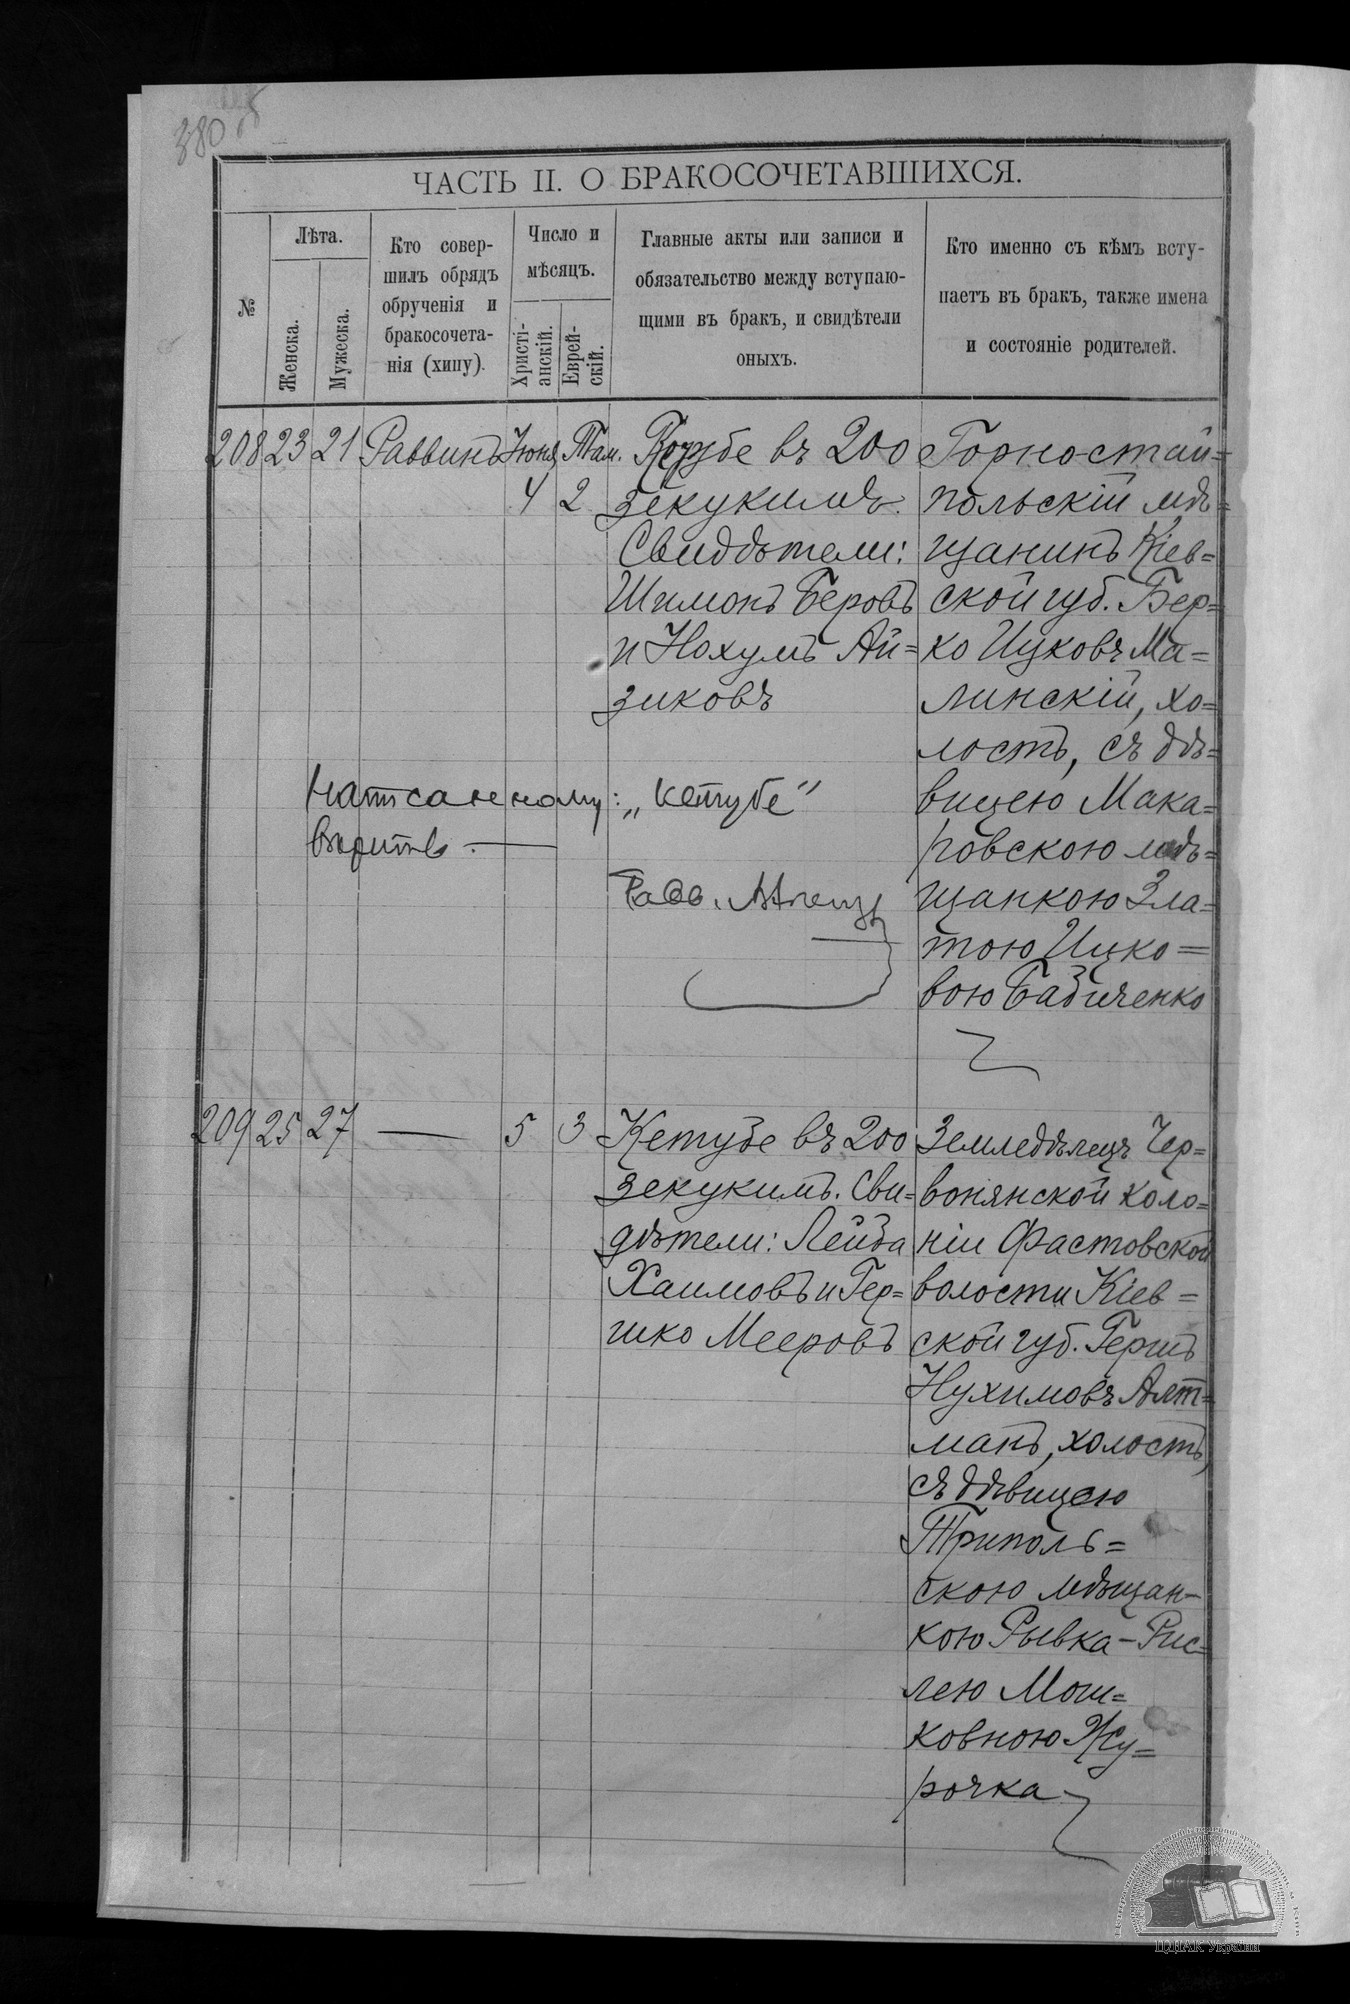 380 об
ЧАСТЬ II. О БРАКОСОЧЕТАВШИХСЯ.
№
Лѣта.
Женска.
Мужеска.
Кто совер-
шилъ обрядъ
обрученія и
бракосочета-
нія (хипу).
Число и
мѣсяцъ.
Христі-
анскій.
Еврей-
скій.
Главные акты или записи и
обязательство между вступаю-
щими въ бракъ, и свидѣтели
оныхъ.
Кто именно съ кѣмъ всту-
паетъ въ бракъ, также имена
и состояніе родителей.
208 23 21 Раввинъ Іюня Там.
4 2
въ 200
зекукимъ.
Свидѣтели:
Шимонъ Беровъ
и Нохумъ Ай=
зиковъ
Написанному: „кетубе“
вѣрить.
Рав.
Горностай=
польскій мѣ=
щанинъ Кіев=
ской губ. Бер=
ко Ицковъ Ма=
линскій, хо=
лостъ, съ дѣ=
вицею Мака=
ровскою мѣ=
щанкою Зла=
тою Ицко=
вою Бабиченко
209 25 27 — 5 3
Кетубе въ 200
зекукимъ. Сви=
дѣтели: Лейба
Хаимовъ и Гер=
шко Мееровъ
Земледѣлецъ Чер=
вонянской коло=
ніи Фастовской
волости Кіев=
ской губ. Гершъ
Нухимовъ Алт=
манъ, холостъ,
съ дѣвицею
Триполь=
скою мѣщан-
кою Рывка-Рис=
лею Мош=
ковною Жу=
рочка
ЦДІАК України